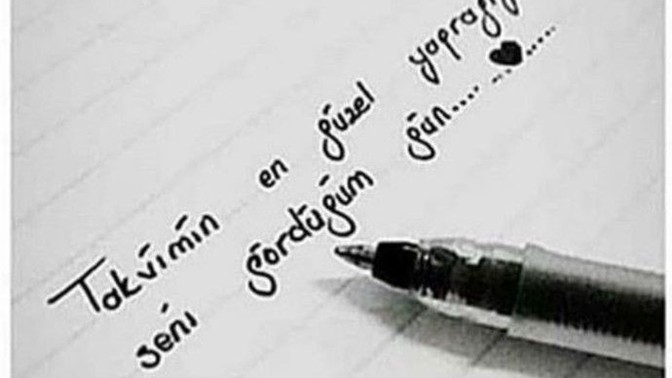 Takvimin en güzel yaprağı
seni gördüğüm gün....